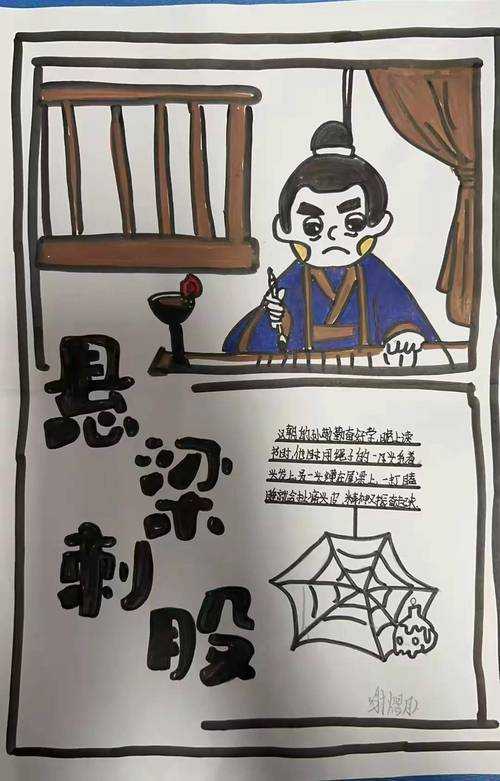 悬
梁
刺
股
汉朝的孙敬勤奋好学,晚上读
书时,他时用绳子的一头系着
头发上另一头绑在屋梁上,一打瞌
睡就会扯痛头皮 精神又振奋起来